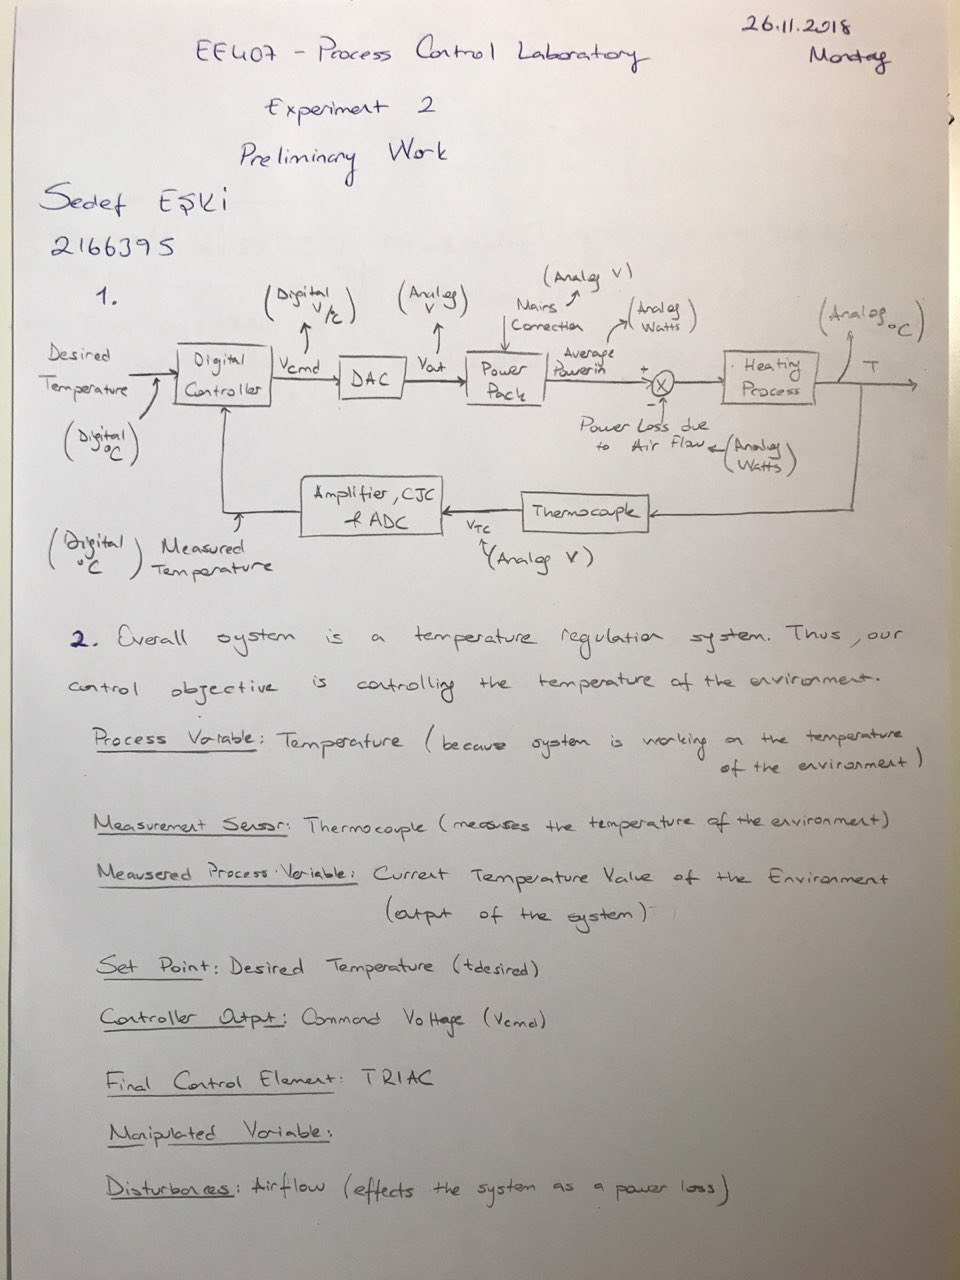 26.11.2018
Monday
EE407 - Process Control Laboratory
Experiment 2
Preliminary Work
Sedef EŞKİ
2166395
1.
(Digital V/°C)
(Analog V)
(Analog V)
Mains Correction
(Analog Watts)
(Analog °C)
Desired Temperature
Digital Controller
Vcmd
DAC
Vout
Power Pack
Average Power in
+
-
X
Heating Process
T
(Digital °C)
Power Loss due to Air Flow
(Analog Watts)
Amplifier, CJC & ADC
VTC
Thermocouple
(Digital °C)
Measured Temperature
(Analog V)
2. Overall system is a temperature regulation system. Thus, our
control objective is controlling the temperature of the environment.
Process Variable: Temperature (because system is working on the temperature
of the environment)
Measurement Sensor: Thermocouple (measures the temperature of the environment)
Meausered Process Variable: Current Temperature Value of the Environment
(output of the system)
Set Point: Desired Temperature (tdesired)
Controller Output: Command Voltage (Vcmd)
Final Control Element: TRIAC
Manipulated Variable:
Disturbances: Airflow (effects the system as a power loss)